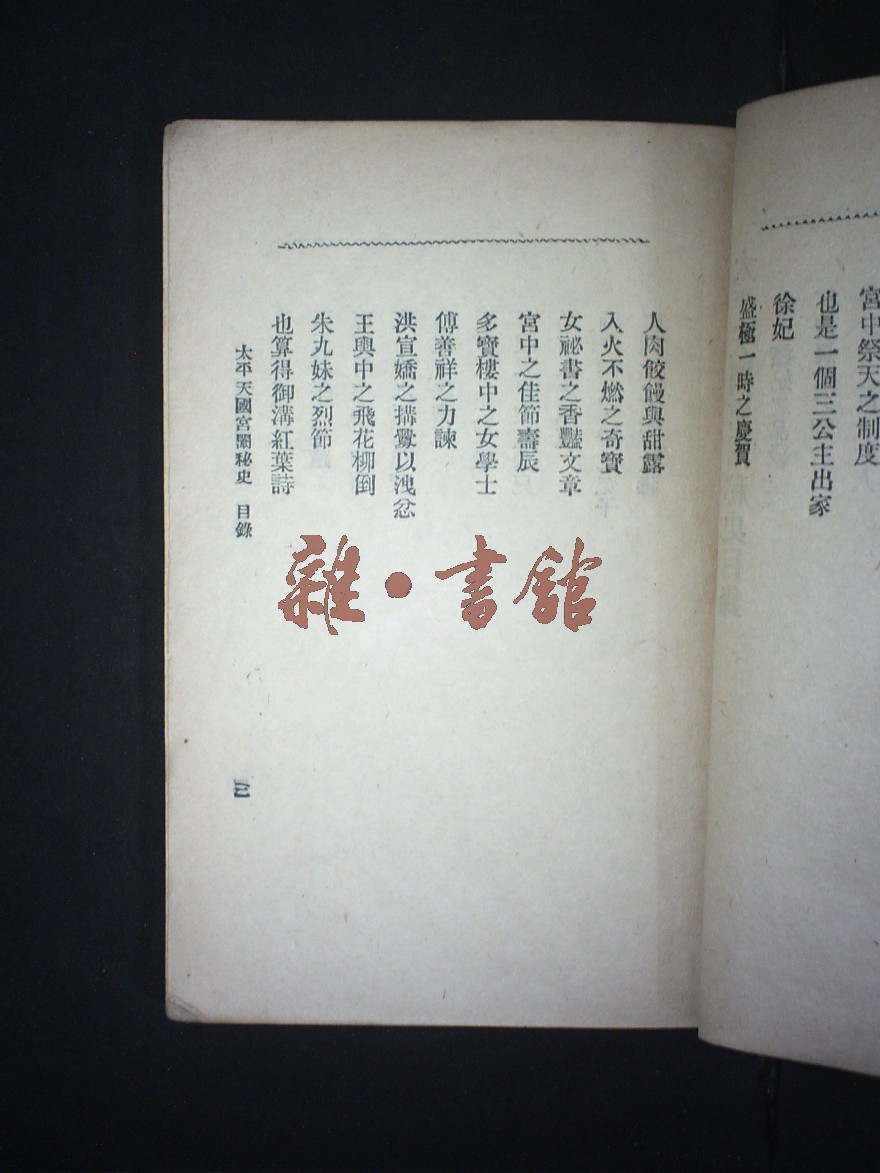 宮中祭天之制度
也是一個三公主出家
徐妃
盛極一時之慶賀
人肉餃饅與甜露
入火不燃之奇寶
女祕書之香豔文章
宮中之佳節壽辰
多寶樓中之女學士
傅善祥之力諫
洪宣嬌之搆釁以洩忿
王輿中之飛花柳倒
朱九妹之烈節
也算得御溝紅葉詩
太平天國宮闈秘史 目錄
三
雜·書館